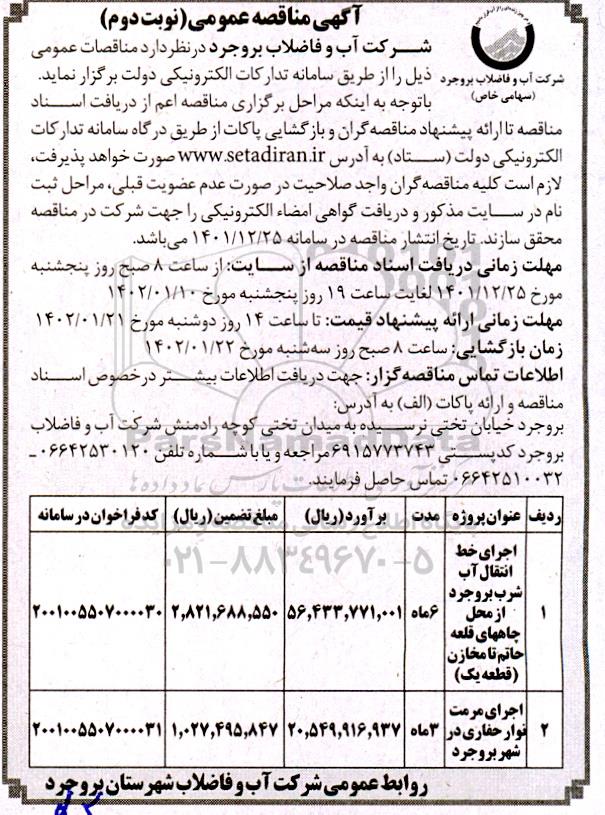 آگهی مناقصه عمومی (نوبت دوم)
شرکت آب و فاضلاب بروجرد
(سهامی خاص)
شرکت آب و فاضلاب بروجرد درنظر دارد مناقصات عمومی
ذیل را از طریق سامانه تدارکات الکترونیکی دولت برگزار نماید.
باتوجه به اینکه مراحل برگزاری مناقصه اعم از دریافت اسناد
مناقصه تا ارائه پیشنهاد مناقصه‌گران و بازگشایی پاکات از طریق درگاه سامانه تدارکات
الکترونیکی دولت (ستاد) به آدرس www.setadiran.ir صورت خواهد پذیرفت،
لازم است کلیه مناقصه‌گران واجد صلاحیت در صورت عدم عضویت قبلی، مراحل ثبت
نام در سایت مذکور و دریافت گواهی امضاء الکترونیکی را جهت شرکت در مناقصه
محقق سازند. تاریخ انتشار مناقصه در سامانه ۱۴۰۱/۱۲/۲۵ می‌باشد.
مهلت زمانی دریافت اسناد مناقصه از سایت: از ساعت ۸ صبح روز پنجشنبه
مورخ ۱۴۰۱/۱۲/۲۵ لغایت ساعت ۱۹ روز پنجشنبه مورخ ۱۴۰۲/۰۱/۱۰
مهلت زمانی ارائه پیشنهاد قیمت: تا ساعت ۱۴ روز دوشنبه مورخ ۱۴۰۲/۰۱/۲۱
زمان بازگشایی: ساعت ۸ صبح روز سه‌شنبه مورخ ۱۴۰۲/۰۱/۲۲
اطلاعات تماس مناقصه‌گزار: جهت دریافت اطلاعات بیشتر درخصوص اسناد
مناقصه و ارائه پاکات (الف) به آدرس:
بروجرد خیابان تختی نرسیده به میدان تختی کوچه رادمنش شرکت آب و فاضلاب
بروجرد کدپستی ۶۹۱۵۷۷۳۷۴۳ مراجعه و یا با شماره تلفن ۰۶۶۴۲۵۳۰۱۲۰ـ
۰۶۶۴۲۵۱۰۰۳۲ تماس حاصل فرمایند.
ParsNamadData
۰۲۱-۸۸۳۴۹۶۷۰-۵
ردیف عنوان پروژه مدت برآورد (ریال) مبلغ تضمین (ریال) کد فراخوان در سامانه
۱ اجرای خط انتقال آب شرب بروجرد از محل چاههای قلعه حاتم تا مخازن (قطعه یک) ۶ماه ۵۶,۴۳۳,۷۷۱,۰۰۱ ۲,۸۲۱,۶۸۸,۵۵۰ ۲۰۰۱۰۰۵۵۰۷۰۰۰۰۳۰
۲ اجرای مرمت نوار حفاری در شهر بروجرد ۳ماه ۲۰,۵۴۹,۹۱۶,۹۳۷ ۱,۰۲۷,۴۹۵,۸۴۷ ۲۰۰۱۰۰۵۵۰۷۰۰۰۰۳۱
روابط عمومی شرکت آب و فاضلاب شهرستان بروجرد